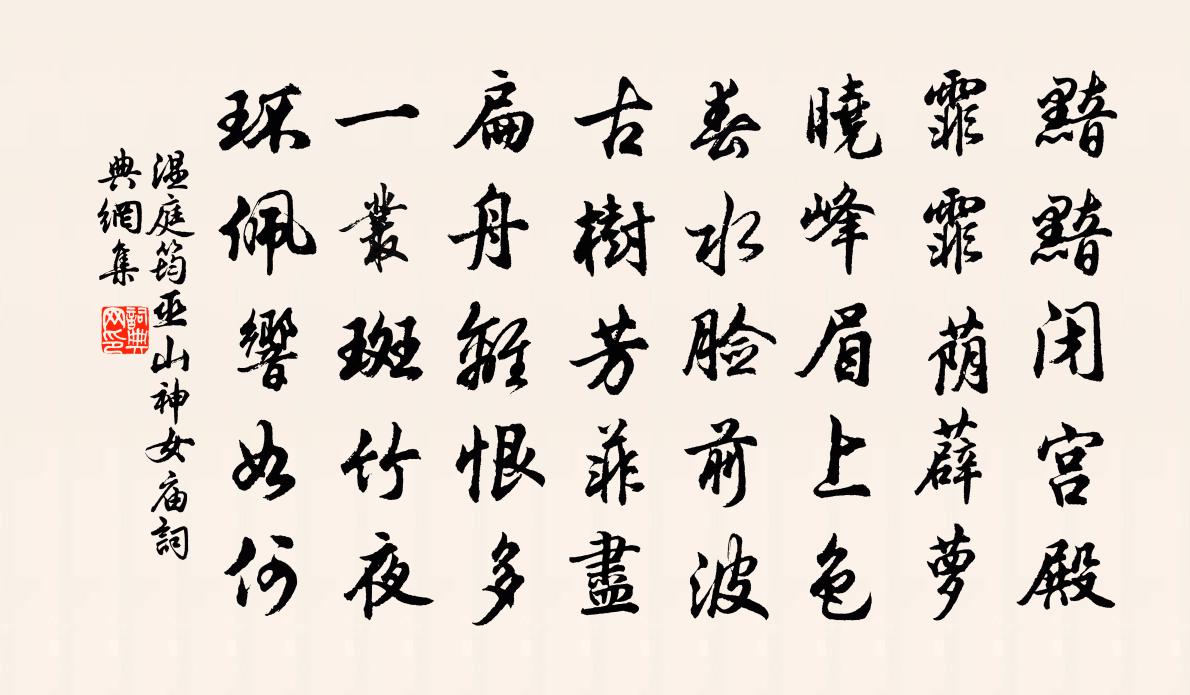 黯黯闭宫殿
霏霏荫薜萝
曉峰眉上色
春水脸前波
古樹芳菲盡
扁舟離恨多
一叢斑竹夜
环佩響如何
温庭筠巫山神女庙詞
典網集
詞典
网印